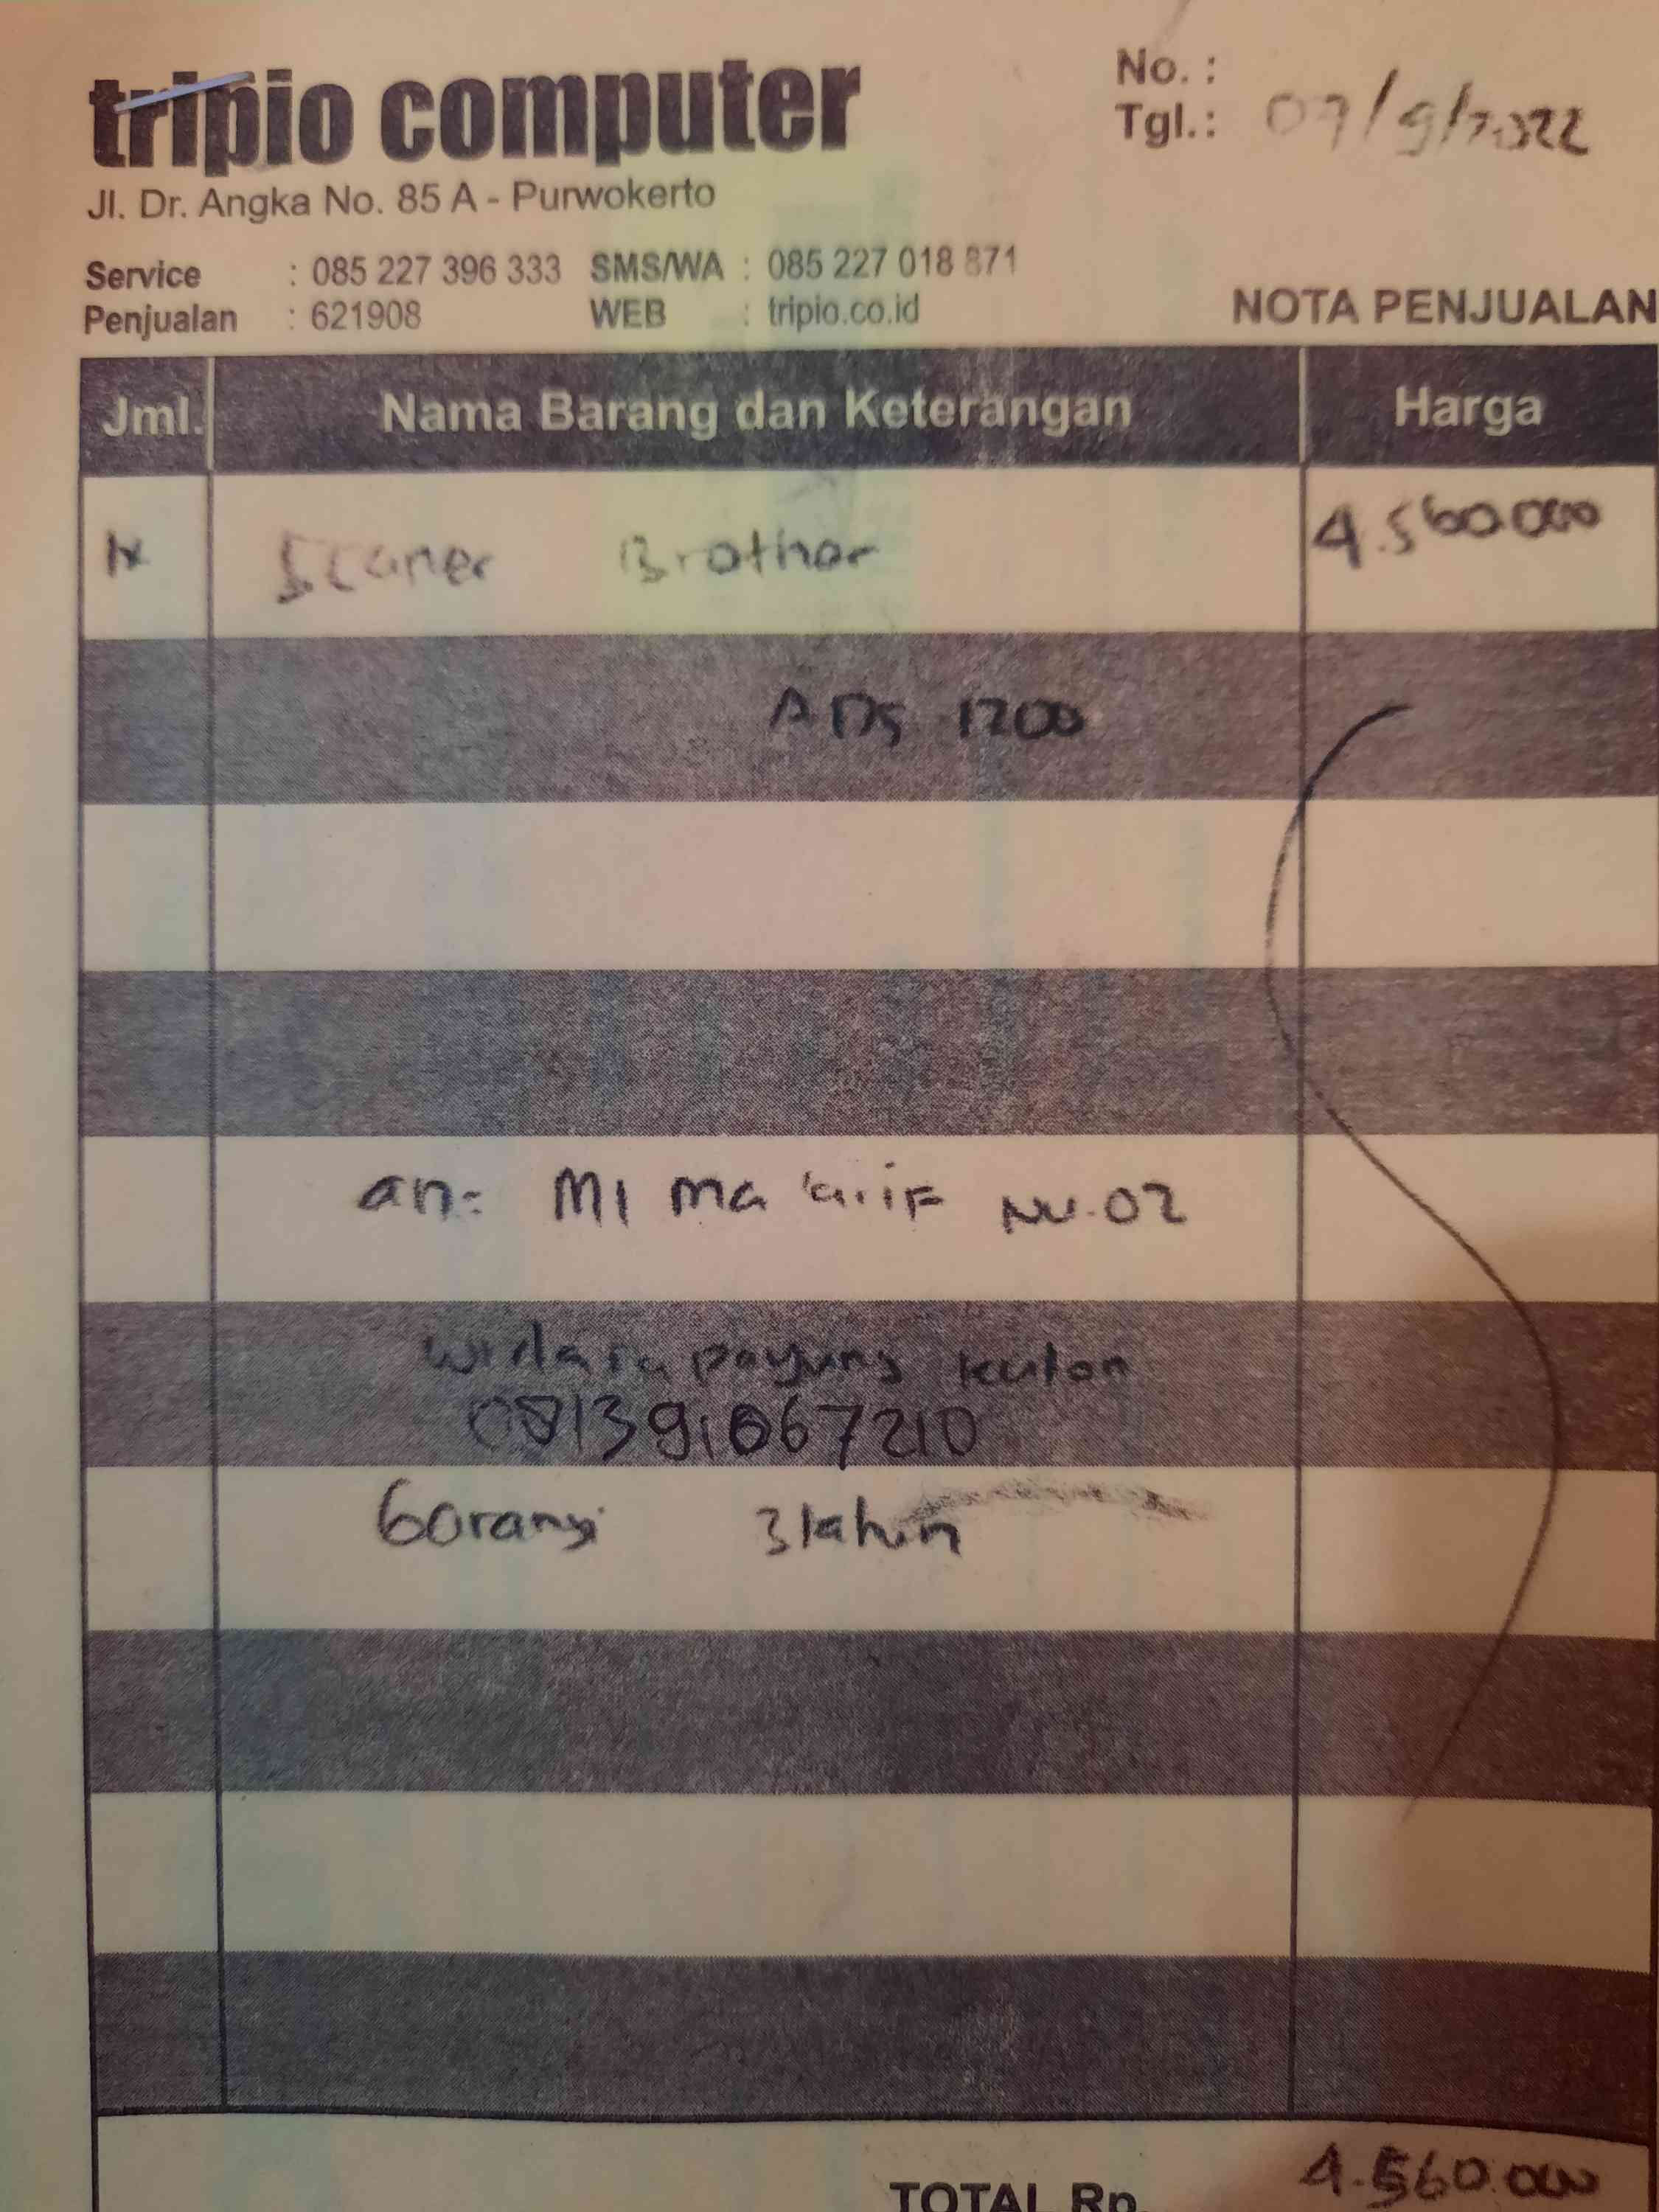 tripio computer
No. :
Tgl.: 07/9/2022
Jl. Dr. Angka No. 85 A - Purwokerto
Service : 085 227 396 333 SMS/WA : 085 227 018 871
Penjualan : 621908 WEB : tripio.co.id
NOTA PENJUALAN
Jml. Nama Barang dan Keterangan Harga
1x Scaner Brother 4.560.000
ADS 1200
an: MI Ma'arif NU.02
widarapayung kulon
081391067210
Goransi 3 tahun
TOTAL Rp. 4.560.000